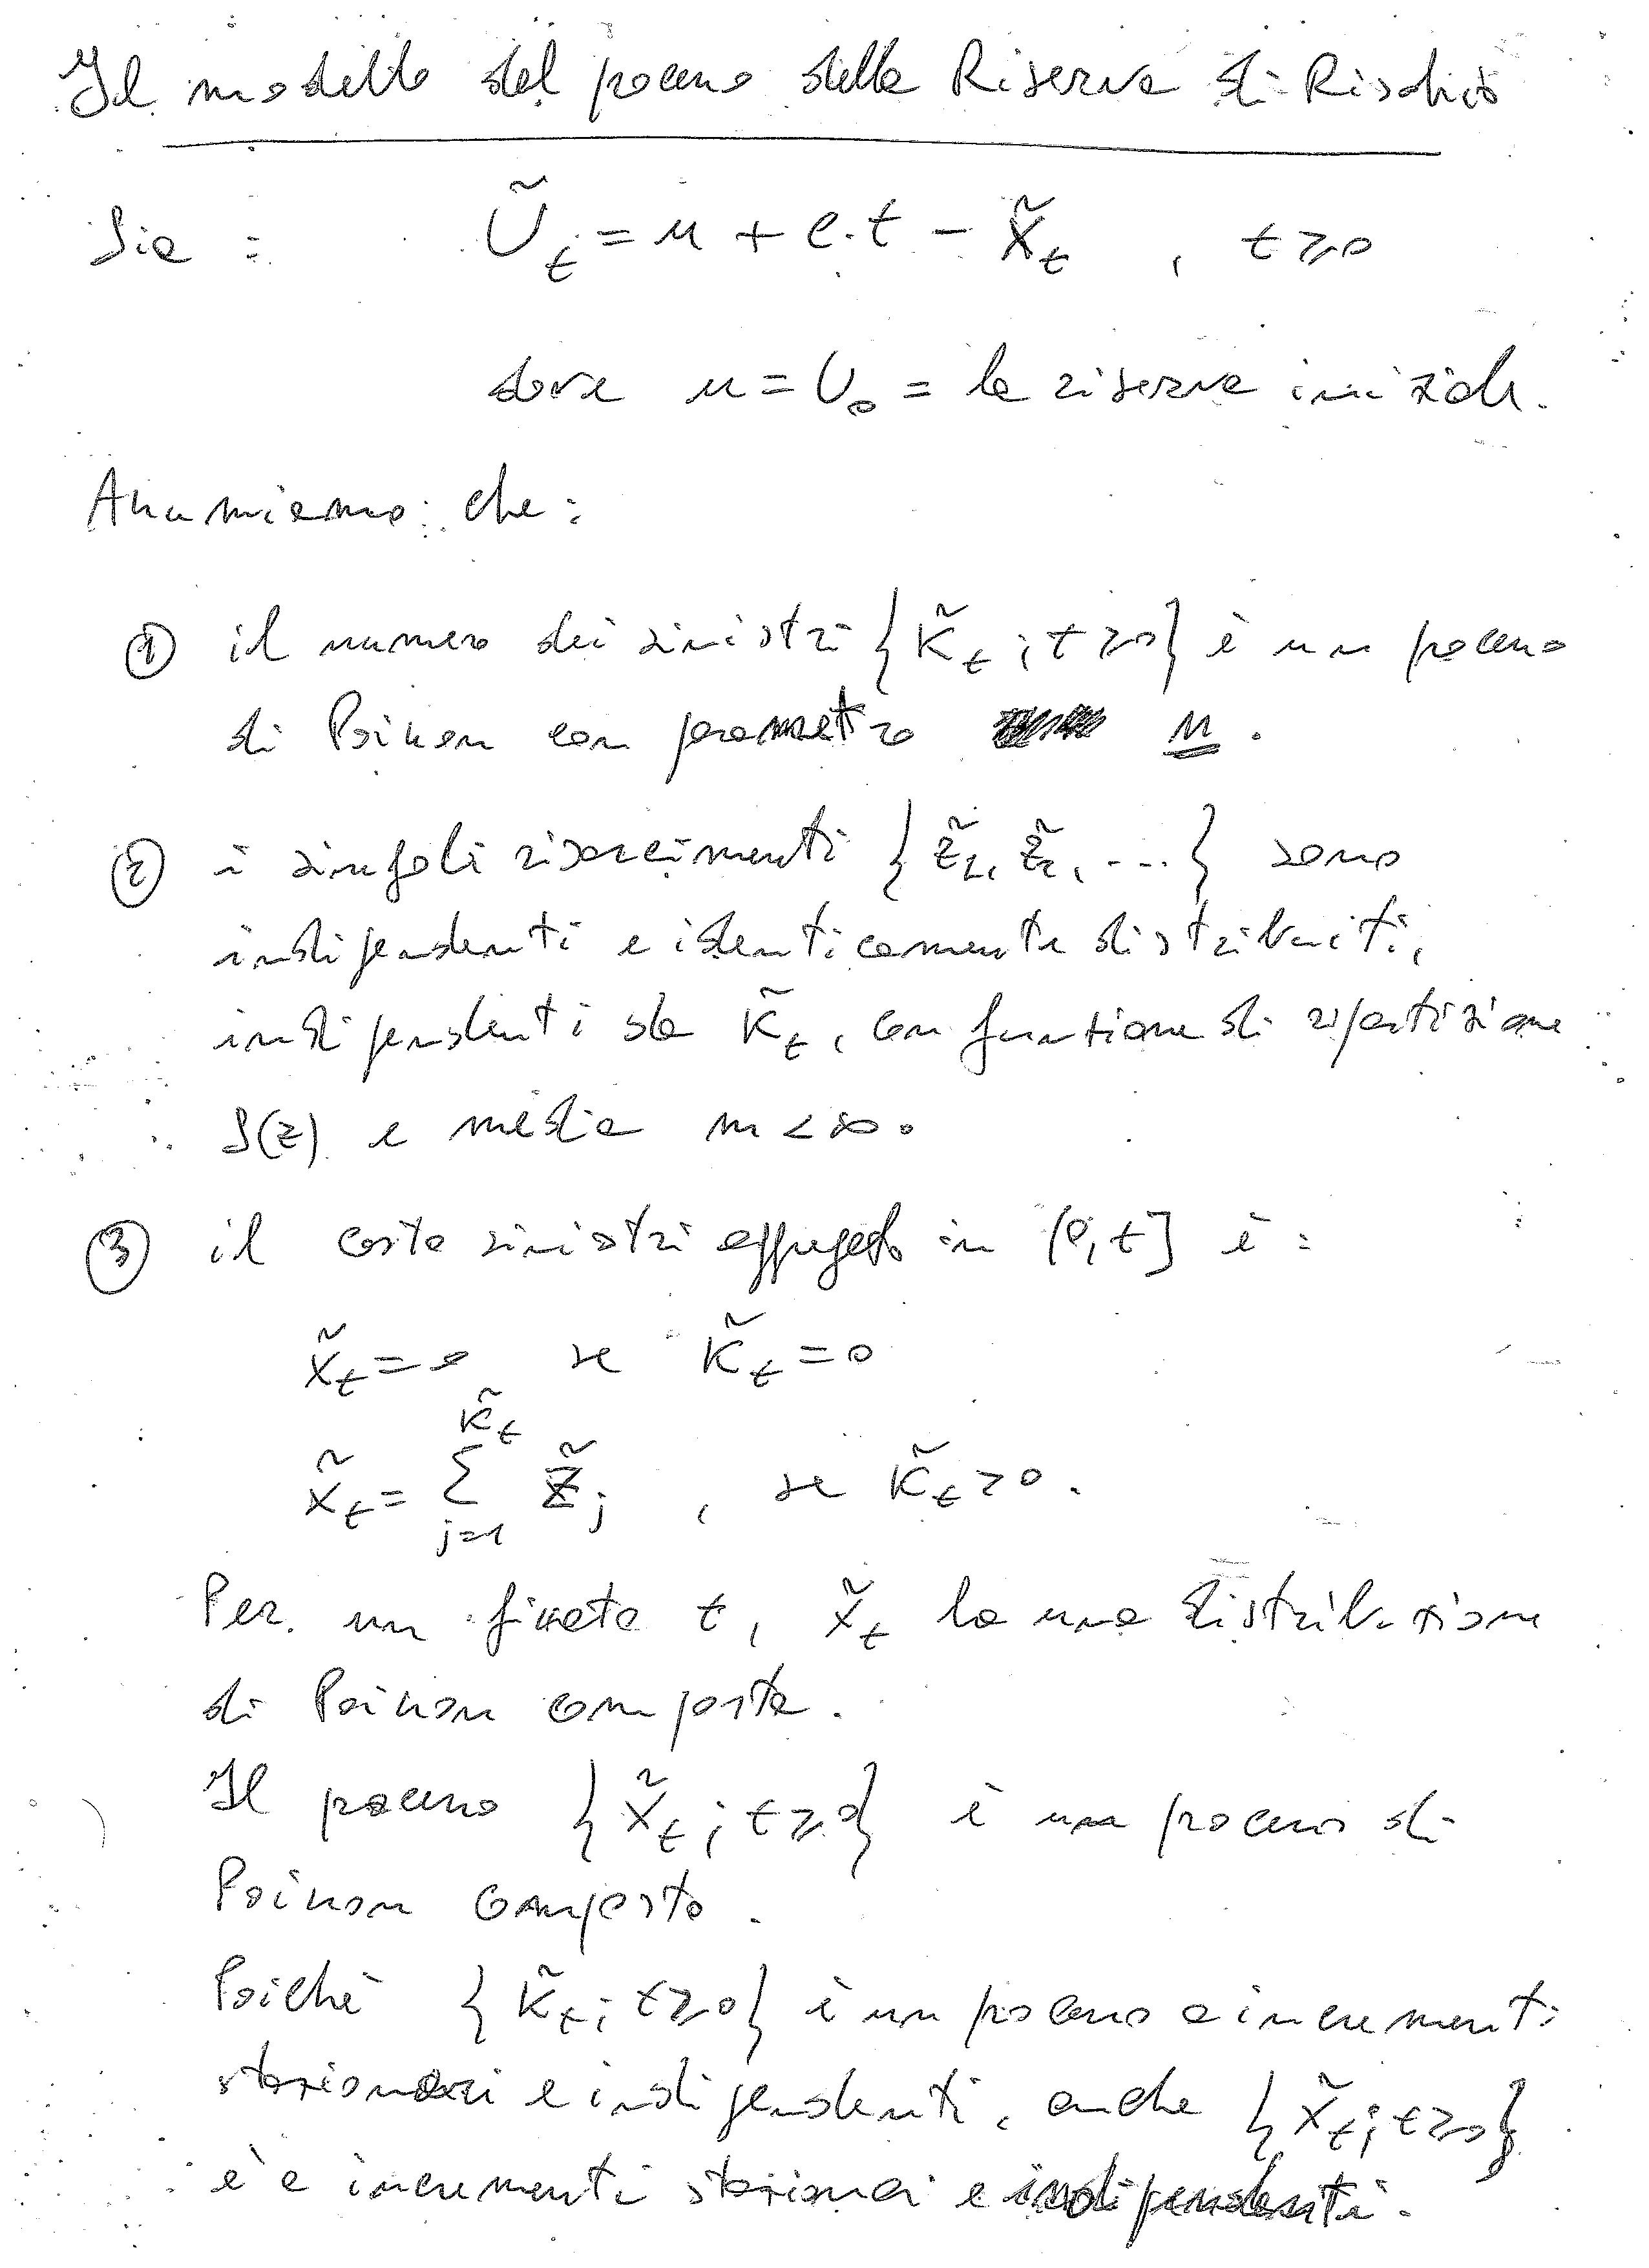 Il modello del processo della Riserva di Rischio
Sia : Ũ_t = u + c·t − X̃_t , t ≥ 0
dove u = U_0 = la riserva iniziale.
Assumiamo che :
① il numero dei sinistri {K̃_t ; t ≥ 0} è un processo
di Poisson con parametro n .
② i singoli risarcimenti {Z̃_1, Z̃_2, ...} sono
indipendenti e identicamente distribuiti,
indipendenti da K̃_t, con funzione di ripartizione
S(z) e media m < ∞.
③ il costo sinistri aggregato in (0,t] è :
X̃_t = 0 se K̃_t = 0
X̃_t = ∑_{j=1}^{K̃_t} Z̃_j , se K̃_t > 0.
Per un fissato t, X̃_t ha una distribuzione
di Poisson composta.
Il processo {X̃_t ; t ≥ 0} è un processo di
Poisson composto.
Poichè {K̃_t ; t ≥ 0} è un processo a incrementi
stazionari e indipendenti, anche {X̃_t ; t ≥ 0}
è a incrementi stazionari e indipendenti.